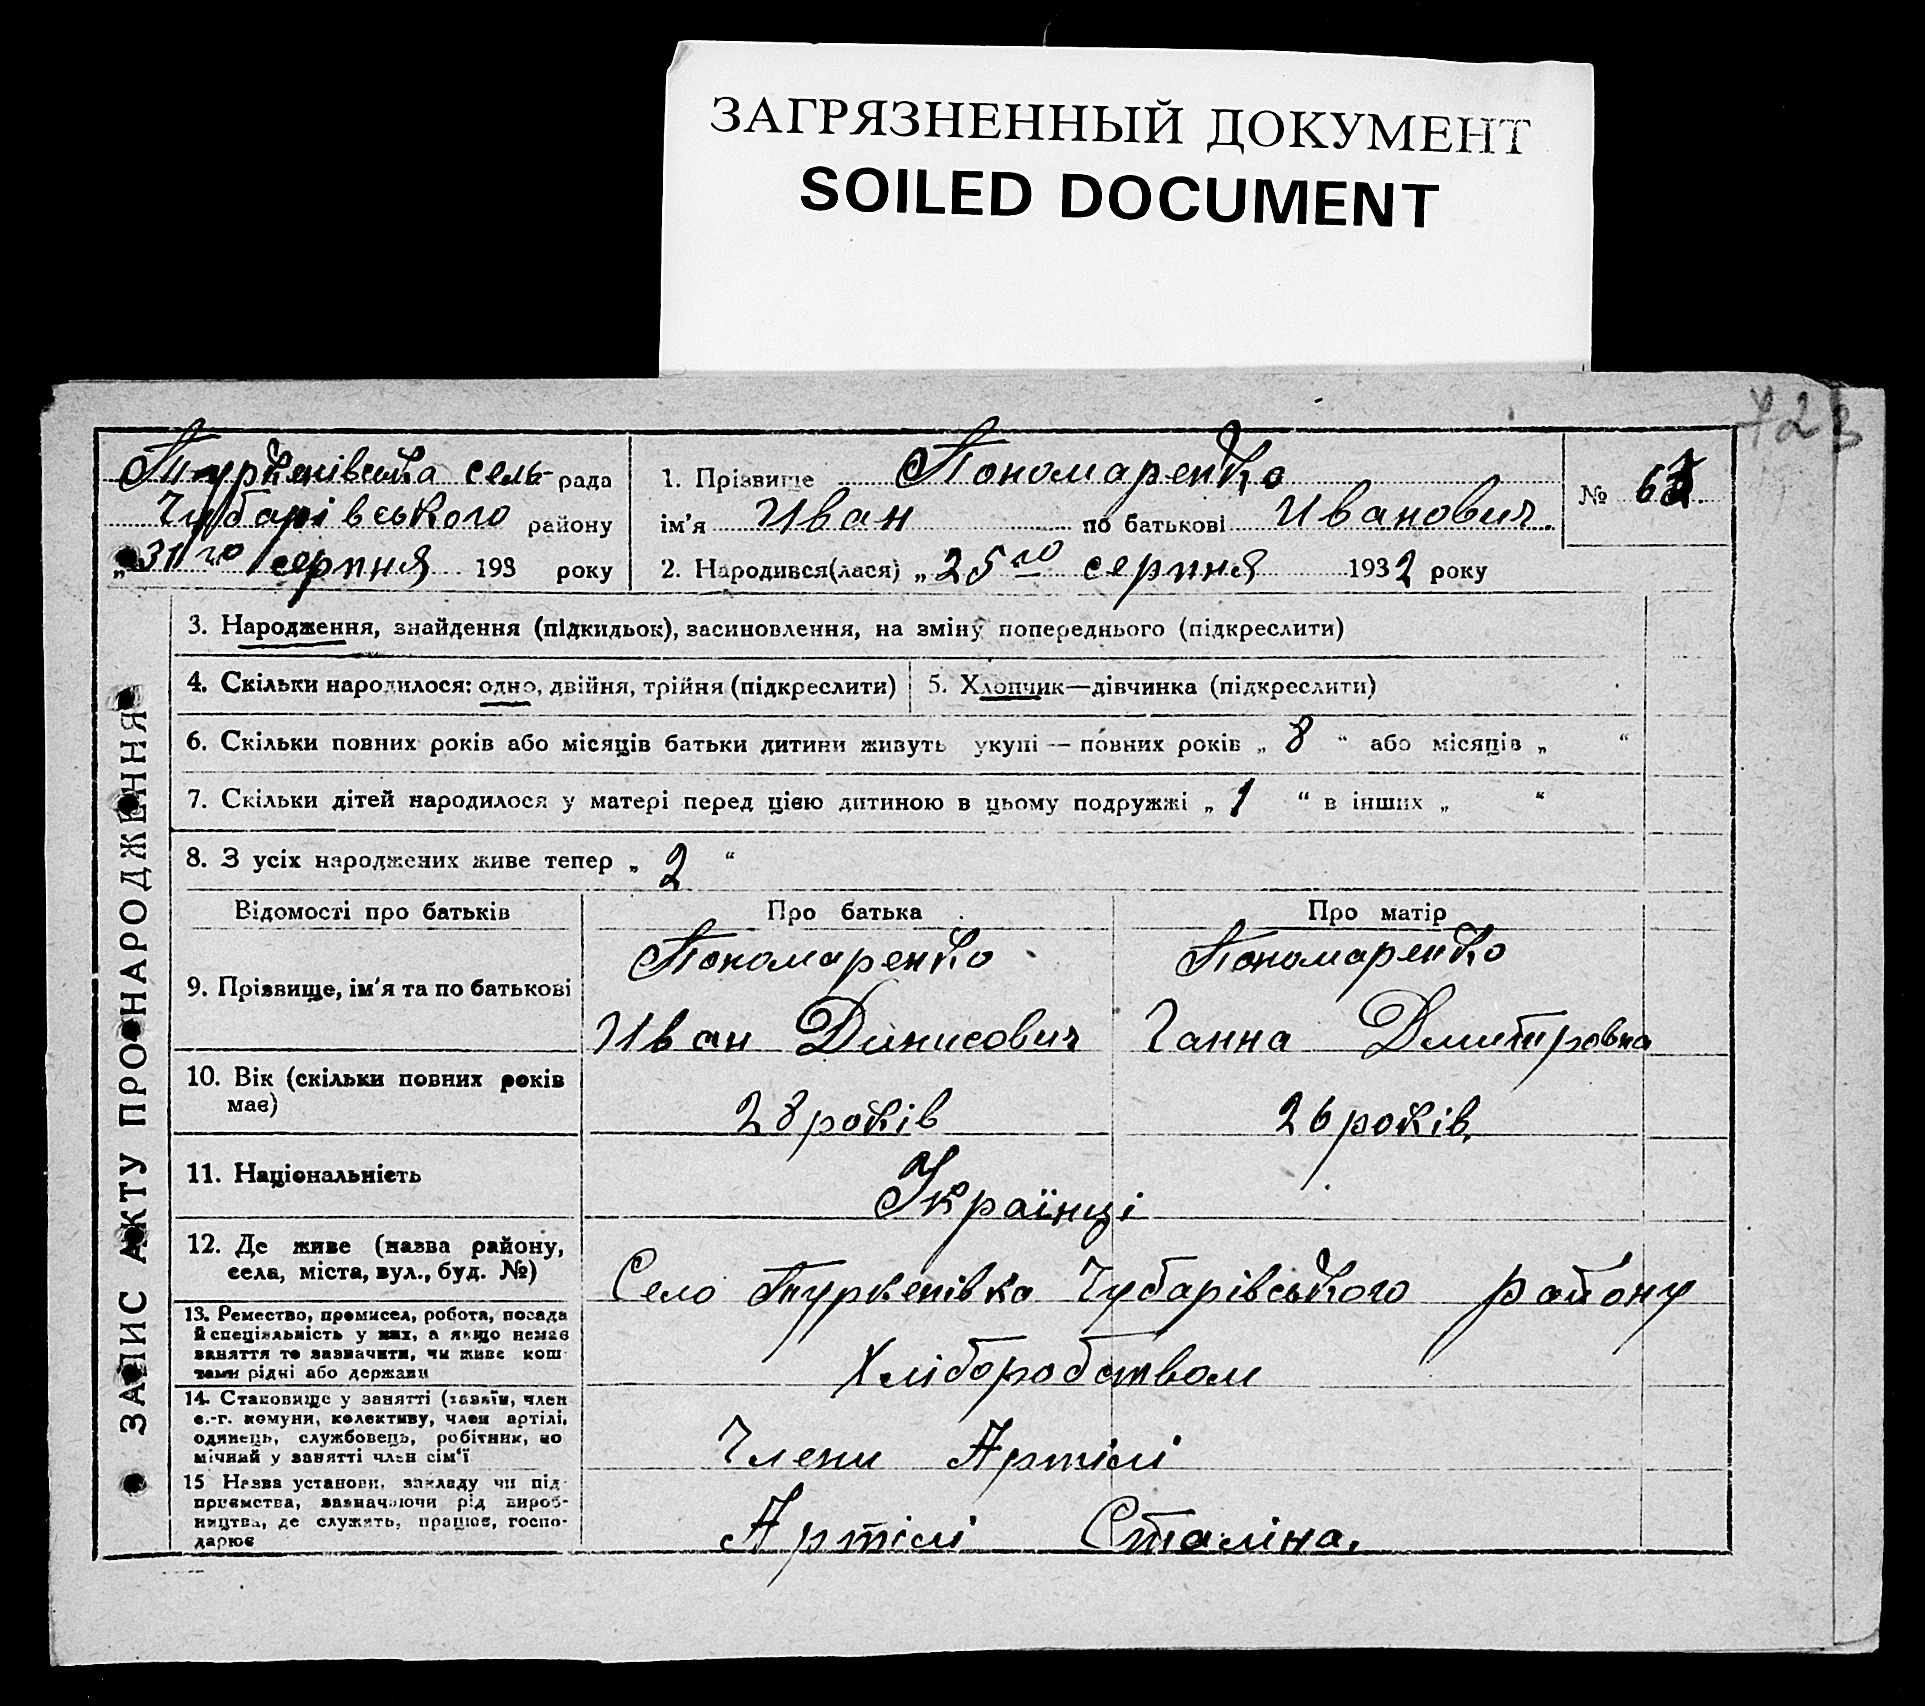 ЗАГРЯЗНЕННЫЙ ДОКУМЕНТ
SOILED DOCUMENT
Туркенівська сель- рада
Чубарівського району
„31го серпня 193 року
1. Прізвище Пономаренко
ім'я Иван по батькові Иванович.
2. Народився(лася) „25го серпня 1932 року
№
ЗАПИС АКТУ ПРО НАРОДЖЕННЯ
3. Народження, знайдення (підкидьок), засиновлення, на зміну попереднього (підкреслити)
4. Скільки народилося: одно, двійня, трійня (підкреслити)
5. Хлопчик—дівчинка (підкреслити)
6. Скільки повних років або місяців батьки дитини живуть укупі — повних років „ 8 “ або місяців „ “
7. Скільки дітей народилося у матері перед цією дитиною в цьому подружжі „ 1 “ в інших „ “
8. З усіх народжених живе тепер „ 2 “
Відомості про батьків Про батька Про матір
9. Прізвище, ім'я та по батькові
Пономаренко
Иван Динисович
Пономаренко
Ганна Дмитровна
10. Вік (скільки повних років
має)
28 років 26 років.
11. Національність
Українці
12. Де живе (назва району,
села, міста, вул., буд. №)
Село Туркенівка Чубарівського району
13. Ремество, промисел, робота, посада
й спеціяльність у них, а якщо немає
заняття то зазначити, чи живе кош-
тами рідні або держави
Хліборобством
14. Становище у занятті (хазяїн, член
с.-г. комуни, колективу, член артілі,
одинець, службовець, робітник, по
мічний у занятті член сім'ї
Члени Артілі
15 Назва установи, закладу чи під-
приємства, зазначаючи рід вироб-
ництва, де служить, працює, госпо-
дарює
Артілі Сталіна.